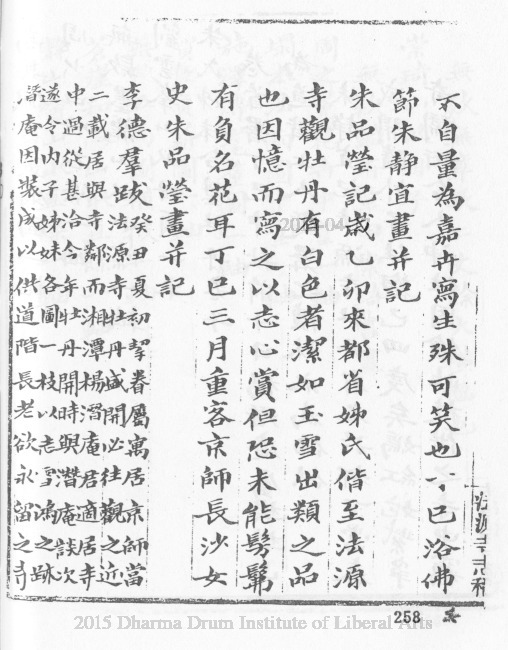 不自量為嘉卉寫生殊可笑也丁巳浴佛
節朱靜宜畫并記
朱品瑩記歲乙卯來都省姊氏偕至法源
寺觀牡丹有白色者潔如玉雪出類之品
也因憶而寫之以志心賞但恐未能髣髴
有負名花耳丁巳三月重客京師長沙女
史朱品瑩畫并記
李德羣跋法源寺牡丹盛開必往觀之近
癸丑夏初挈眷屬寓居京師當
二載居與寺鄰而湘潭楊潛庵居適居寺
中過從甚洽今年牡丹開時與潛庵談次
遂令內子姊妹各圖一枝以志雪鴻之跡
潛庵因裝成以供道階長老欲永留之寺
法源寺志稿
258
2015 Dharma Drum Institute of Liberal Arts